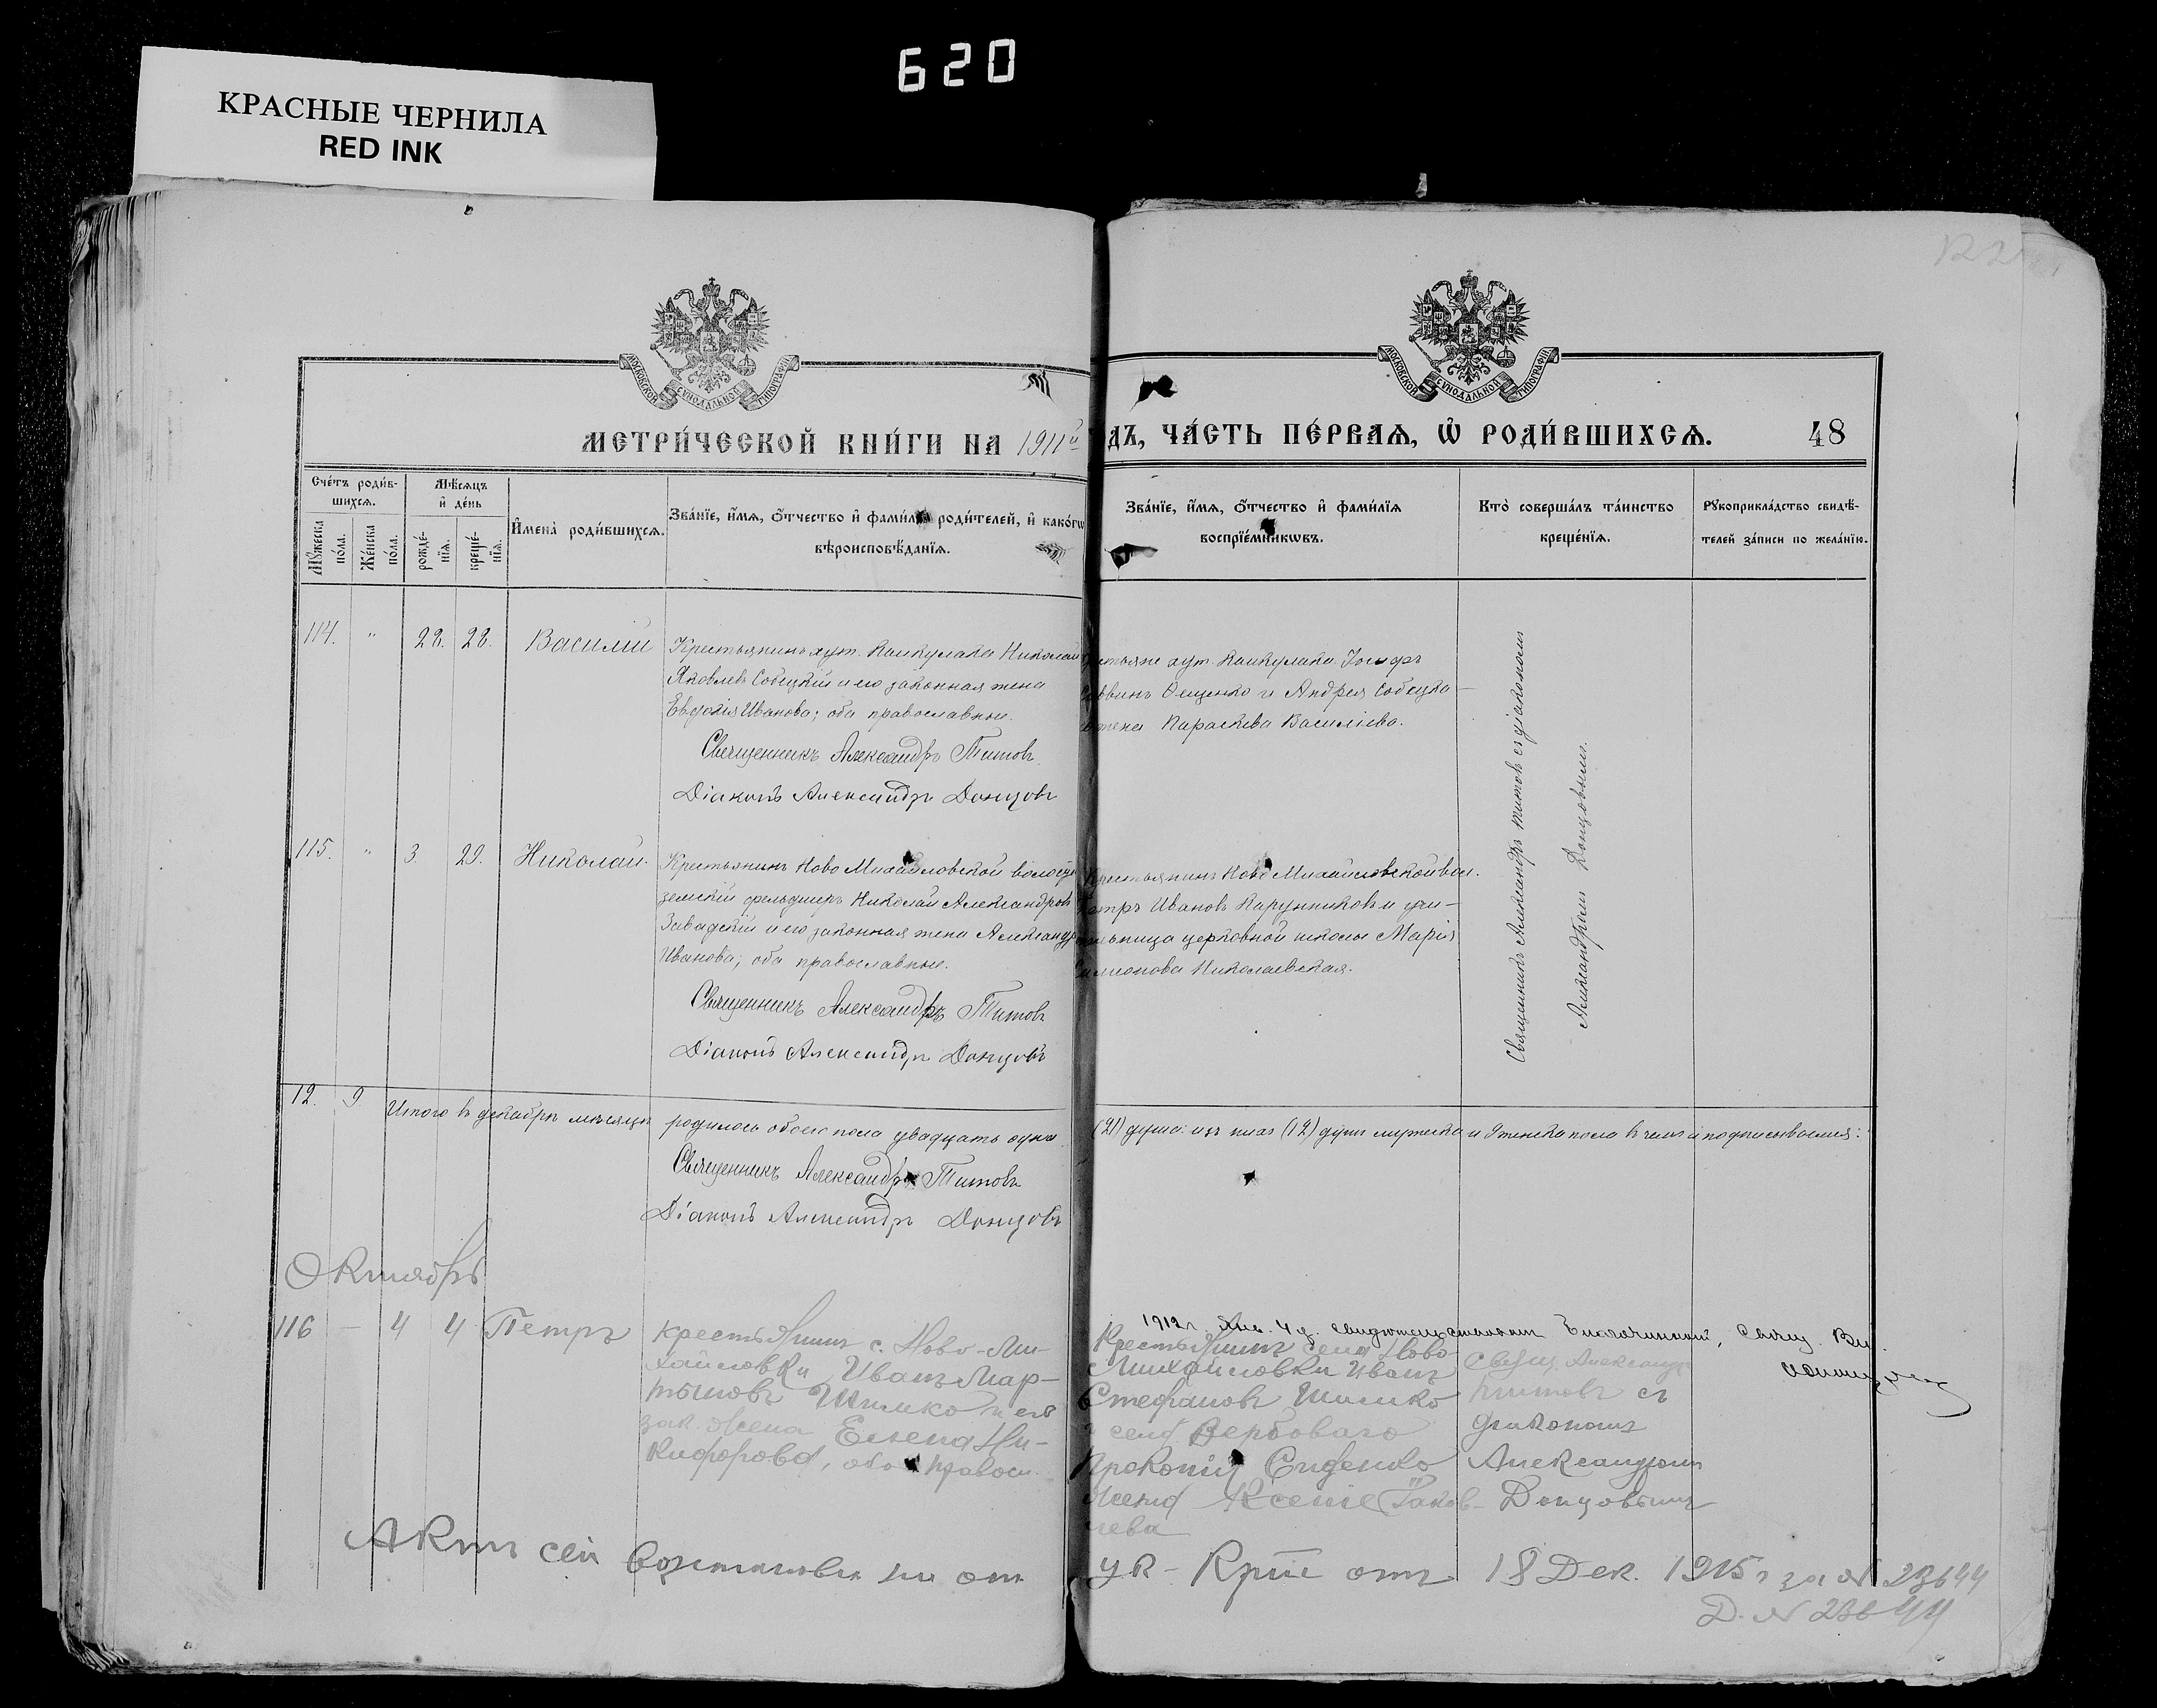 620
КРАСНЫЕ ЧЕРНИЛА
RED INK
МОСКОВСКОЙ СѴНОДАЛЬНОЙ ТИПОГРАФІИ
МОСКОВСКОЙ СѴНОДАЛЬНОЙ ТИПОГРАФІИ
МЕТРИ́ЧЕСКОЙ КНИ́ГИ НА 1911й
дъ, ЧА́СТЬ ПЕ́РВАѦ, Ѿ РОДИ́ВШИХСѦ. 48
Счéтъ роди́в-
шихсѧ.
Мꙋ́жеска
по́ла.
Же́нска
по́ла.
Мѣ́сѧцъ
и҆ де́нь
рожде́-
нїѧ.
креще́-
нїѧ.
И҆мена̀ роди́вшихсѧ.
Зва́нїе, и҆́мѧ, ѻ҆́тчество и҆ фами́лїѧ роди́телей, и҆ како́гѡ
вѣроисповѣ́данїѧ.
Зва́нїе, и҆́мѧ, ѻ҆́тчество и҆ фами́лїѧ
воспрїе́мникѡвъ.
Кто̀ соверша́лъ та́инство
креще́нїѧ.
Рꙋкоприкла́дство свидѣ́-
телей за́писи по жела́нїю.
114. " 28. 28. Василій
Крестьянинъ хут. Канкулака Николай
Яковлевъ Собецкій и его законная жена
Евдокія Иванова; оба православные.
Священникъ Александръ Титовъ
Діаконъ Александръ Донцовъ
стьяне хут. Канкулака Іосифъ
Ѳещенко и Андрея Собецка-
жена Параскева Василіева.
Священникъ Александръ Титовъ съ діакономъ
Александромъ Донцовымъ.
115. " 3. 29. Николай.
Крестьянинъ Ново Михайловской волости
земскій фельдшеръ Николай Александровъ
Завадскій и его законная жена Александр
Иванова; оба православные.
Священникъ Александръ Титовъ
Діаконъ Александръ Донцовъ
Крестьянинъ Ново Михайловской вол.
Петръ Ивановъ Карунниковъ и учи-
тельница церковной школы Марія
Симіонова Николаевская.
12. 9 Итого въ декабрѣ мѣсяцѣ родилось обоего пола двадцать одна
(21) душа: изъ нихъ (12) душъ мужска и 9 женска пола въ чемъ и подписываемся:
Священникъ Александръ Титовъ
Діаконъ Александръ Донцовъ
Октябрь
116 – 4 4 Петръ
крестьянинъ с. Ново-Ми-
хайловки Иванъ Мар-
тыновъ Шимко и его
зак. жена Елена Ни-
кифорова, оба правосл.
1912 г. Янв. 4 д. Благочинный, Свящ.
Крестьянинъ села Ново
Михайловки Иванъ
Стефановъ Шимко
и села Вербоваго
Прокопія Сиденко
жена Ксенія Іаков-
лева
Свящ. Александръ
Титовъ съ
діакономъ
Александромъ
Донцовымъ
Актъ сей возстановленъ от
ук- отъ 18 Дек. 1915 г за № 23644
Д. № 23644